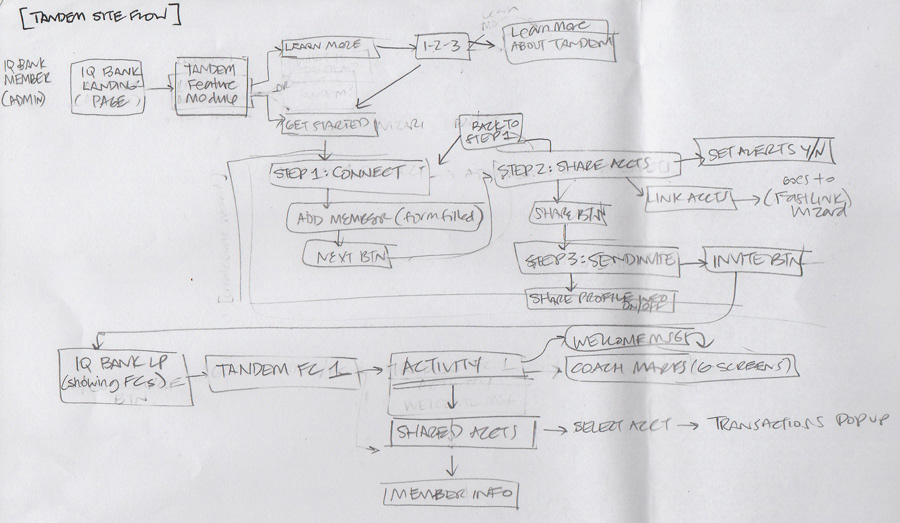 [TANDEM SITE FLOW]
IQ BANK
MEMBER
(ADMIN)
IQ BANK
LANDING
(PAGE)
TANDEM
Feature
Module
LEARN MORE
OR
GET STARTED
1-2-3
Learn More
ABOUT TANDEM
BACK TO
STEP 1
STEP 1: CONNECT
ADD MEMBER (form filled)
NEXT BTN
STEP 2: SHARE ACCTS
SET ALERTS Y/N
LINK ACCTS
goes to
(FastLink)
Wizard
SHARE BTN
STEP 3: SEND INVITE
INVITE BTN
SHARE PROFILE INFO
ON/OFF
IQ BANK LP
(showing FCs)
TANDEM FC 1
ACTIVITY
WELCOME MSG
COACH MARKS (6 SCREENS)
SHARED ACCTS
SELECT ACCT
TRANSACTIONS POPUP
MEMBER INFO